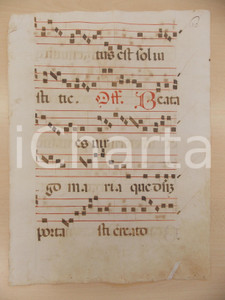 tus est sol iu
sti tie. Off. Beata
es uir
go maria que dn̄z
porta sti creato
iCharta